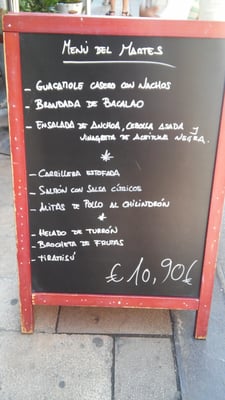 MENÚ DEL MARTES
- GUACAMOLE CASERO CON NACHOS
- BRANDADA DE BACALAO
- ENSALADA DE ANCHOA, CEBOLLA ASADA Y
VINAGRETA DE ACEITUNA NEGRA.
*
- CARRILLERA ESTOFADA
- SALMÓN CON SALSA CÍTRICOS
- ALITAS DE POLLO AL CHILINDRÓN
*
- HELADO DE TURRÓN
- BROCHETA DE FRUTAS
- TIRAMISÚ
€ 10,90€